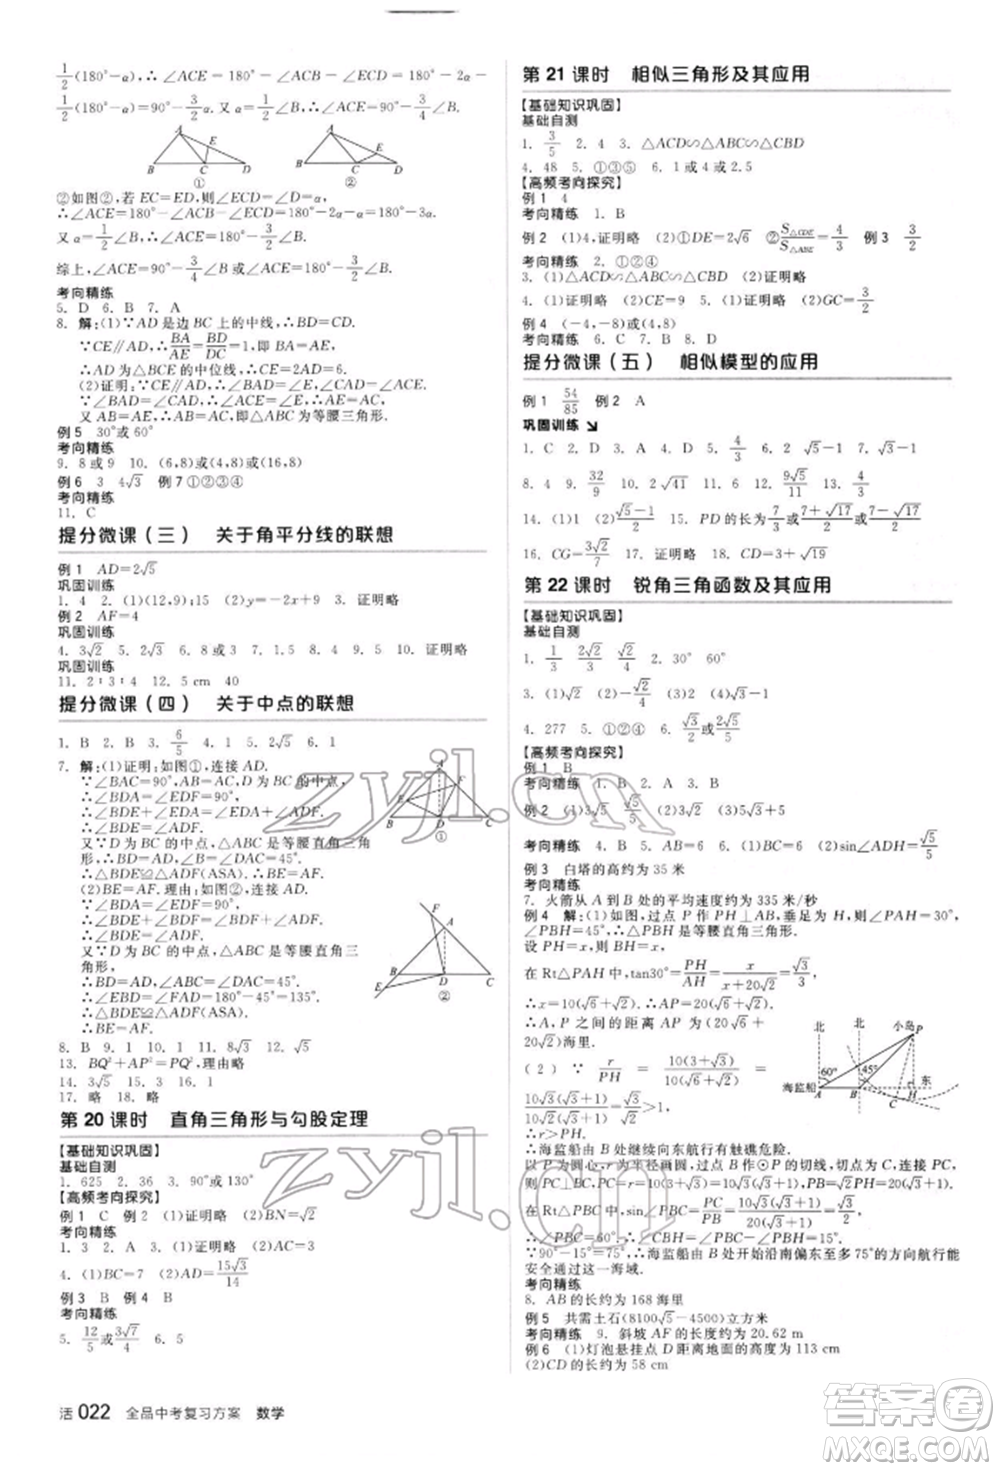 $\frac{1}{2}$(180°−α),∴∠ACE=180°−∠ACB−∠ECD=180°−2α−
$\frac{1}{2}$(180°−α)=90°−$\frac{3}{2}$α.又 α=$\frac{1}{2}$∠B,∴∠ACE=90°−$\frac{3}{4}$∠B.
A E B C D ①
A E B C D ②
②如图②,若 EC=ED,则∠ECD=∠EDC=α,
∴∠ACE=180°−∠ACB−∠ECD=180°−2α−α=180°−3α.
又 α=$\frac{1}{2}$∠B,∴∠ACE=180°−$\frac{3}{2}$∠B.
综上,∠ACE=90°−$\frac{3}{4}$∠B 或∠ACE=180°−$\frac{3}{2}$∠B.
考向精练
5. D 6. B 7. A
8. 解:(1)∵AD 是边 BC 上的中线,∴BD=CD.
∵CE∥AD,∴$\frac{BA}{AE}$=$\frac{BD}{DC}$=1,∴BA=AE,
∴AD 是△BCE 的中位线,∴CE=2AD=6.
(2)证明:∵CE∥AD,
∴∠BAD=∠E,∠CAD=∠ACE.
又∵∠BAD=∠CAD,∴∠ACE=∠E,∴AE=AC.
又 AB=AE,∴AB=AC,∴△ABC 为等腰三角形.
例 5 30°或 60°
考向精练
9. 8 或 9 10. (6,8)或(16,8)或(4,8)
例 6 3 4√3 例 7 ①②③④
考向精练
11. C
提分微课(三) 关于角平分线的联想
例 1 AD=2√5
巩固训练
1. 4 2. (1)(12,9);15 (2)y=−2x+9 3. 证明略
例 2 AF=4
巩固训练
4. 3√2 5. 2√3 6. 8 或 3 7. 1.5 8. 4 9. 8 10. 证明略
11. 2∶3∶4 12. 5 cm 40
提分微课(四) 关于中点的联想
1. B 2. B 3. $\frac{6}{5}$ 4. 1 5. 2√5 6. 1
7. 解:(1)证明:如图①,连接 AD.
∵∠BAC=90°,AB=AC,D 为 BC 的中点,
∴∠BDA=∠EDF=90°,
∴∠BDE+∠EDA=∠EDA+∠ADF,
∴∠BDE=∠ADF.
又∵D 为 BC 的中点,△ABC 是等腰直角三角
形,∴BD=AD,∠B=∠DAC=45°,
∴△BDE≌△ADF(ASA),∴BE=AF.
(2)BE=AF. 理由:如图②,连接 AD.
∵∠BDA=∠EDF=90°,
∴∠BDE+∠BDF=∠BDF+∠ADF,
∴∠BDE=∠ADF.
又∵D 为 BC 的中点,△ABC 是等腰直角三
角形,
∴BD=AD,∠ABC=∠DAC=45°,
∴∠EBD=∠FAD=180°−45°=135°,
∴△BDE≌△ADF(ASA).
∴BE=AF.
A F E B D C ①
F A B D C E ②
8. B 9. 1 10. 1 11. 8√3 12. 5
13. BQ²+AP²=PQ²,理由略
14. 3√5 15. 3 16. 证明略
17. 略 18. 略
第 20 课时 直角三角形与勾股定理
【基础知识巩固】
基础自测
1. 625 2. 36 3. 90°或 130°
【高频考向探究】
例 1 C 例 2 (1)证明略 (2)BN=√2
考向精练
1. 3 2. 11 3. √5
4. (1)BC=7 (2)sin∠ADC=$\frac{15√3}{14}$
例 3 B 例 4 B
考向精练
5. $\frac{12}{5}$或$\frac{3√7}{4}$ 6. 5
活 022 全品中考复习方案 数学
第 21 课时 相似三角形及其应用
【基础知识巩固】
基础自测
1. $\frac{3}{5}$ 2. 4 3. △ACD∽△ABC∽△CBD
4. 48 5. ①③⑤ 6. 1 或 4 或 2.5
【高频考向探究】
例 1 4
考向精练 1. B
例 2 (1)4,证明略 (2)①DE=2√6 ②$\frac{S_{△CDE}}{S_{△ABE}}$=$\frac{4}{3}$ 例 3 $\frac{3}{2}$
考向精练 2. ①②③
3. (1)△ACD∽△ABC∽△CBD (2)证明略
4. (1)证明略 (2)CE=9 5. (1)证明略 (2)GC=$\frac{3}{2}$
例 4 (−4,−8)或(4,8)
考向精练 6. C 7. B 8. D
提分微课(五) 相似模型的应用
例 1 $\frac{54}{85}$ 例 2 A
巩固训练
1. C 2. D 3. A 4. D 5. $\frac{4}{3}$ 6. 2 √5−1 7. √3
8. 4 9. $\frac{32}{9}$ 10. 2√41 11. 6 12. $\frac{9√5}{11}$ 13. 证明略
14. (1)2 (2)$\frac{√5−1}{2}$ 15. PD 的长为$\frac{7}{3}$或$\frac{7+√17}{2}$或$\frac{7−√17}{2}$
16. CG=$\frac{3√2}{2}$ 17. 证明略 18. CD=5+√19
第 22 课时 锐角三角函数及其应用
【基础知识巩固】
基础自测
1. $\frac{1}{3}$ $\frac{2√2}{3}$ $\frac{√2}{4}$ 2. 30° 60°
3. (1)√2 (2)
4. 277 5. ①②④ 6. $\frac{√3}{2}$或$\frac{2√5}{5}$
【高频考向探究】
例 1 B
考向精练 1. B 2. A 3. B 4. A
例 2 (1)3√2 (2)3√2 (3)5√3+5
考向精练 5. (1)B (2)B 6. (1)BC=4 (2)sin∠ADH=$\frac{√5}{5}$
例 3 白塔的高约为 35 米
考向精练
7. 火箭从 A 到 B 处的平均速度约为 335 米/秒
例 4 解:(1)如图,过点 P 作 PH⊥AB,垂足为 H,∠PAH=30°,
∠PBH=45°,∴BH=PH.
设 PH=x,则 BH=x.
在 Rt△PAH 中,tan30°=$\frac{PH}{AH}$=$\frac{x}{x+20√2}$=$\frac{√3}{3}$,
∴x=10(√6+√2),∴PA=2x=20(√6+√2),
∴A,P 之间的距离 AP 为(20√6+
20√2)海里.
(2)∵$\frac{r}{PH}$=$\frac{10(\sqrt{3}+1)}{10(√6+√2)}$=
$\frac{10(√3+1)}{10√2(√3+1)}$=$\frac{√2}{2}$<1,
∴r>PH.
北 北 小岛 P 60° 45° 海监船 A B H 东 C
∴海监船由 B 处继续向东航行有触礁危险.
以 P 为圆心,r 为半径画圆,过点 B 作⊙P 的切线,切点为 C,
连接 PC,则 PC⊥BC,PC=r=10(√3+1),PB=√2PH=20(√3+1).
在 Rt△PBC 中,sin∠PBC=$\frac{PC}{PB}$=
∴∠PBC=60°,∴∠CBH=∠PBC−∠PBH=60°−45°=15°.
∵90°−15°=75°,∴海监船由 B 处开始沿南偏东至多 75°的方向航行能
安全通过这一海域.
考向精练
8. AB 的长约为 168 海里
例 5 共需土石(8100√5−4500)立方米
考向精练 9. 斜坡 AF 的长度约为 20.62 m
例 6 (1)灯泡悬挂点 D 距离地面的高度为 113 cm
(2)CD 的长约为 58 cm
zyjl.cn
zyjl.cn
答案圈
MXQE.COM